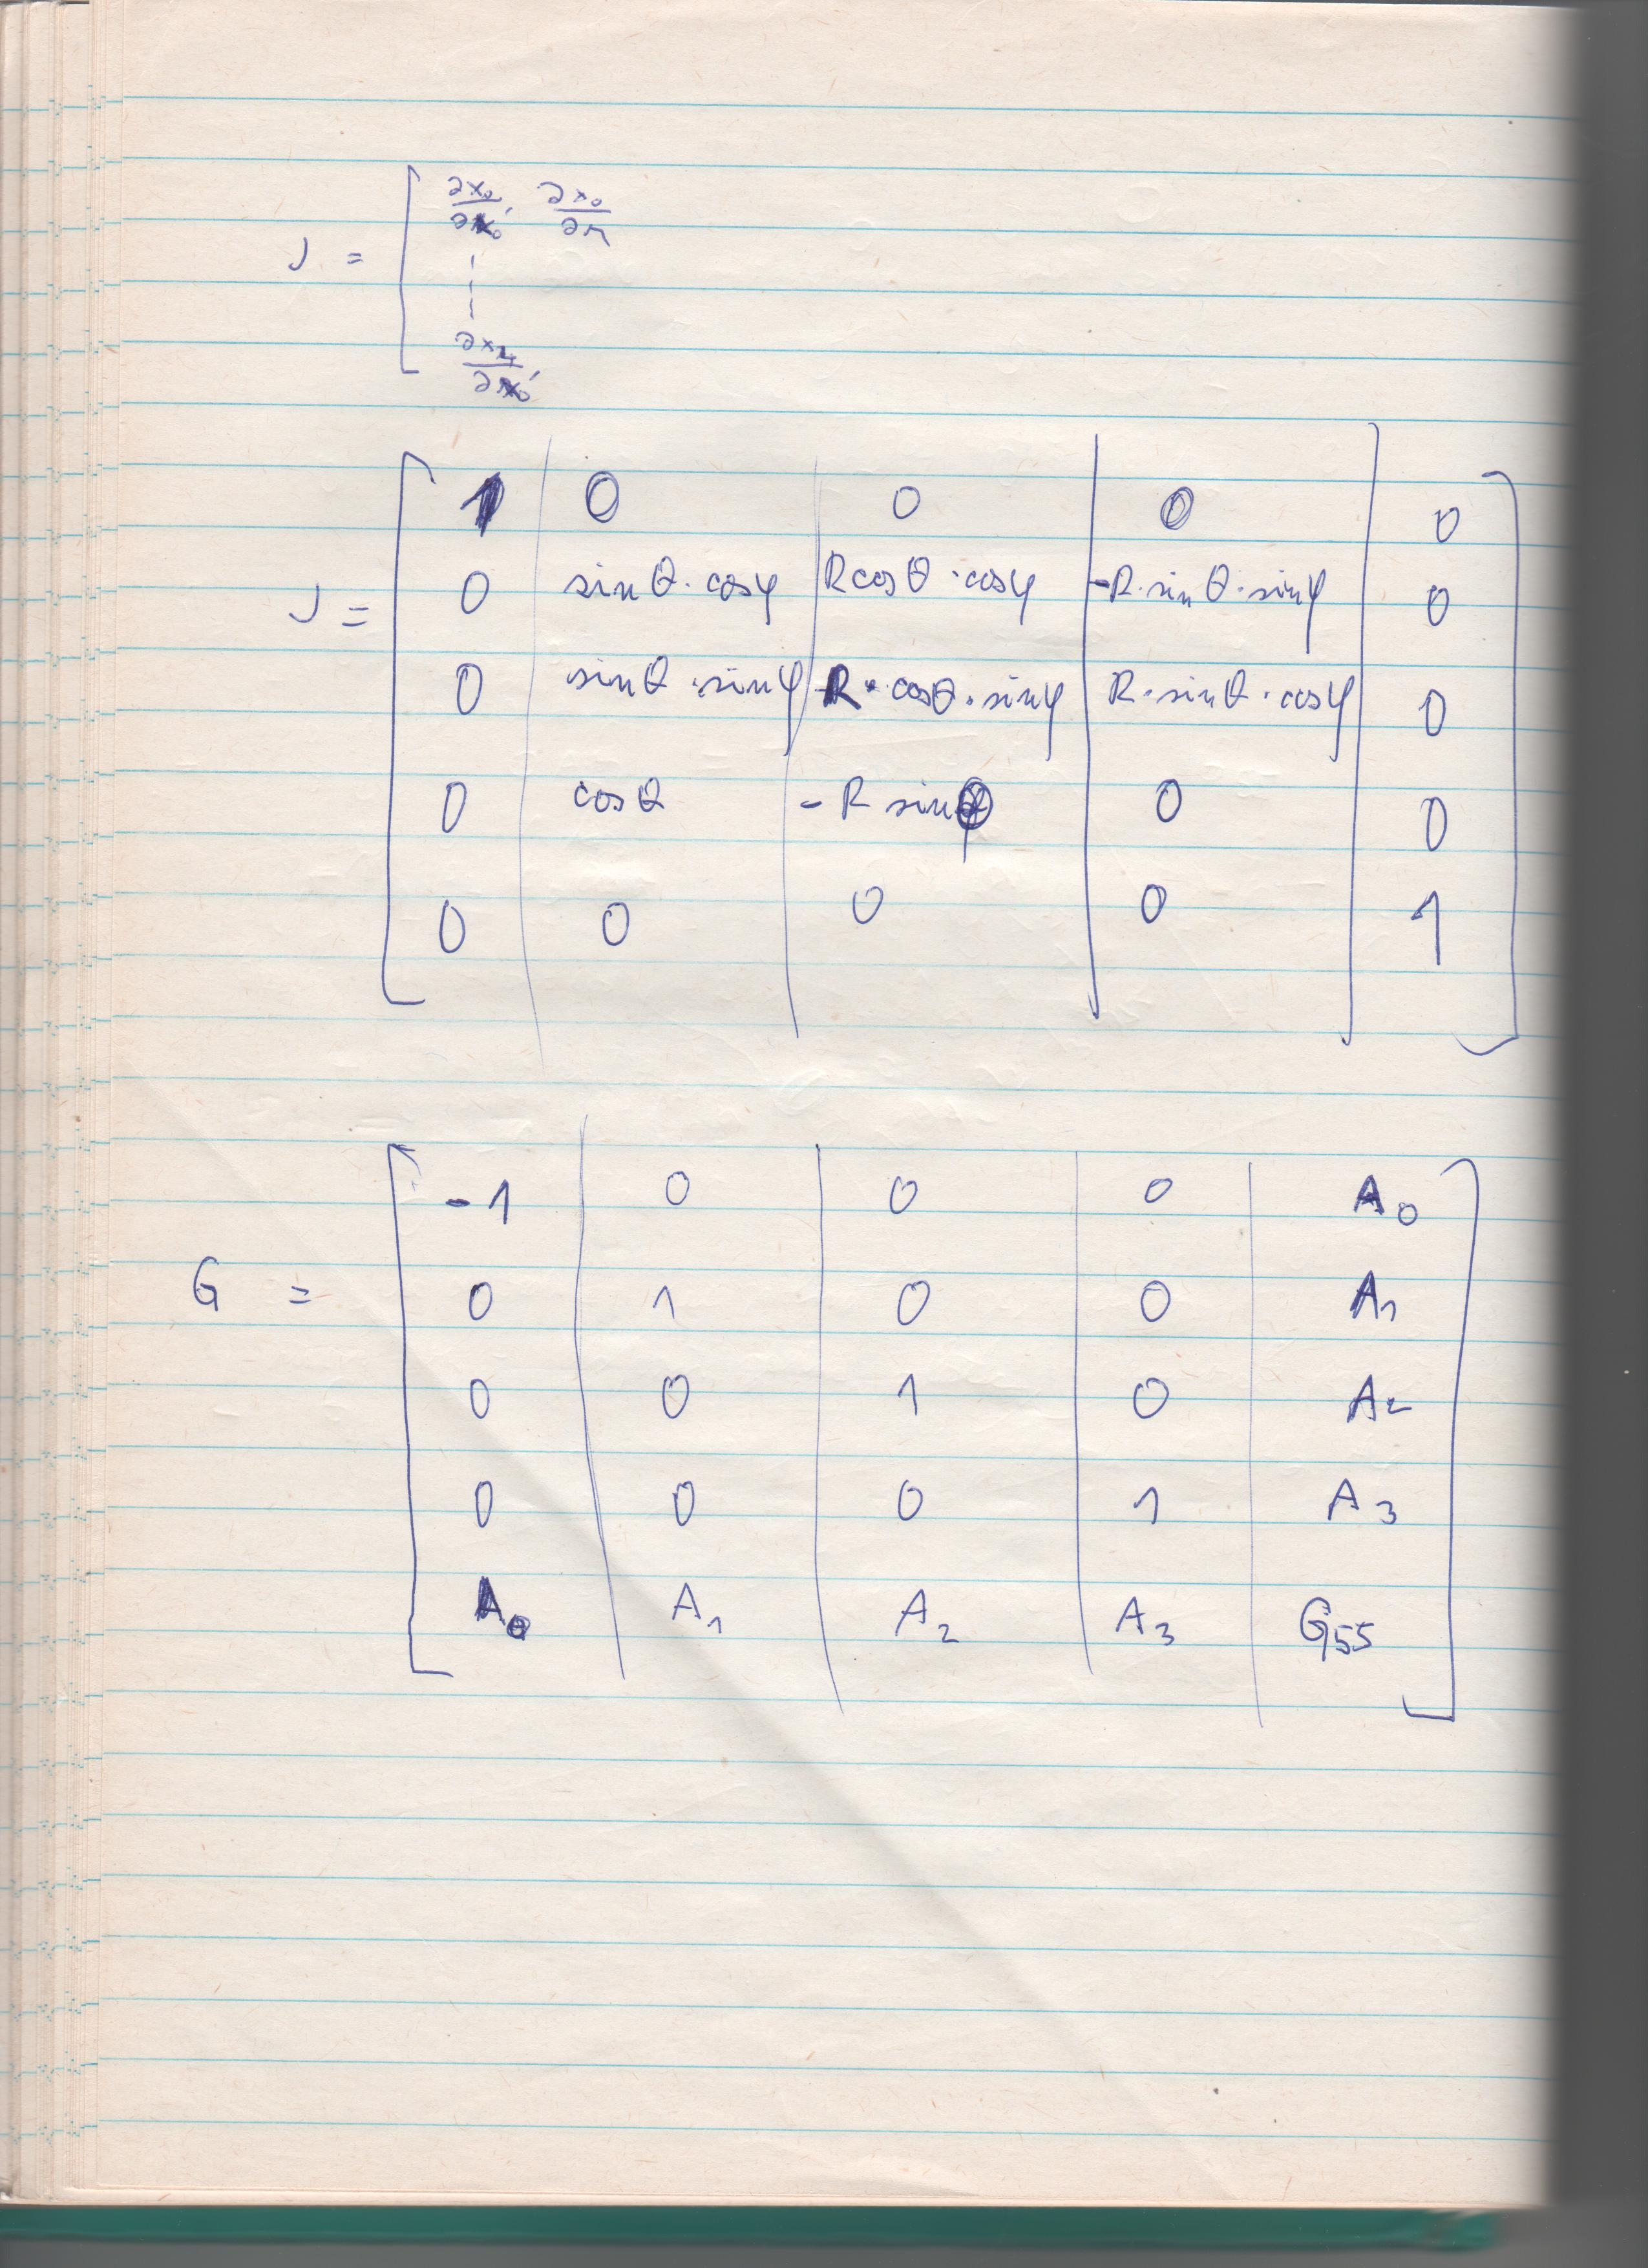 J = [ ∂x₀/∂x₀' ∂x₀/∂r
⋮
∂x₄/∂x₀'
1 0 0 0 0
0 sinθ·cosφ Rcosθ·cosφ -R·sinθ·sinφ 0
J =
0 sinθ·sinφ R·cosθ·sinφ R·sinθ·cosφ 0
0 cosθ -R sinθ 0 0
0 0 0 0 1
-1 0 0 0 A₀
G = 0 1 0 0 A₁
0 0 1 0 A₂
0 0 0 1 A₃
A₀ A₁ A₂ A₃ G₅₅